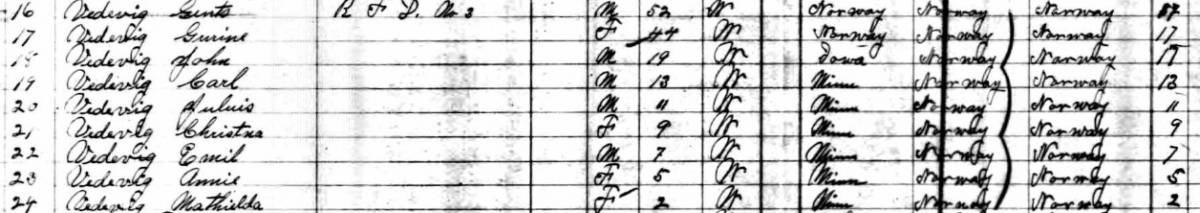 16 Vedevig Gunts R F D. No 3 M 52 W Norway Norway Norway
17 Vedevig Gurine F 44 W Norway Norway Norway 17
18 Vedevig John M 19 W Iowa Norway Norway
19 Vedevig Carl M 13 W Minn Norway Norway 13
20 Vedevig Juluis M 11 W Minn Norway Norway 11
21 Vedevig Christna F 9 W Minn Norway Norway 9
22 Vedevig Emil M 7 W Minn Norway Norway 7
23 Vedevig Annie F 5 W Minn Norway Norway 5
24 Vedevig Mathielda F 2 W Minn Norway Norway 2